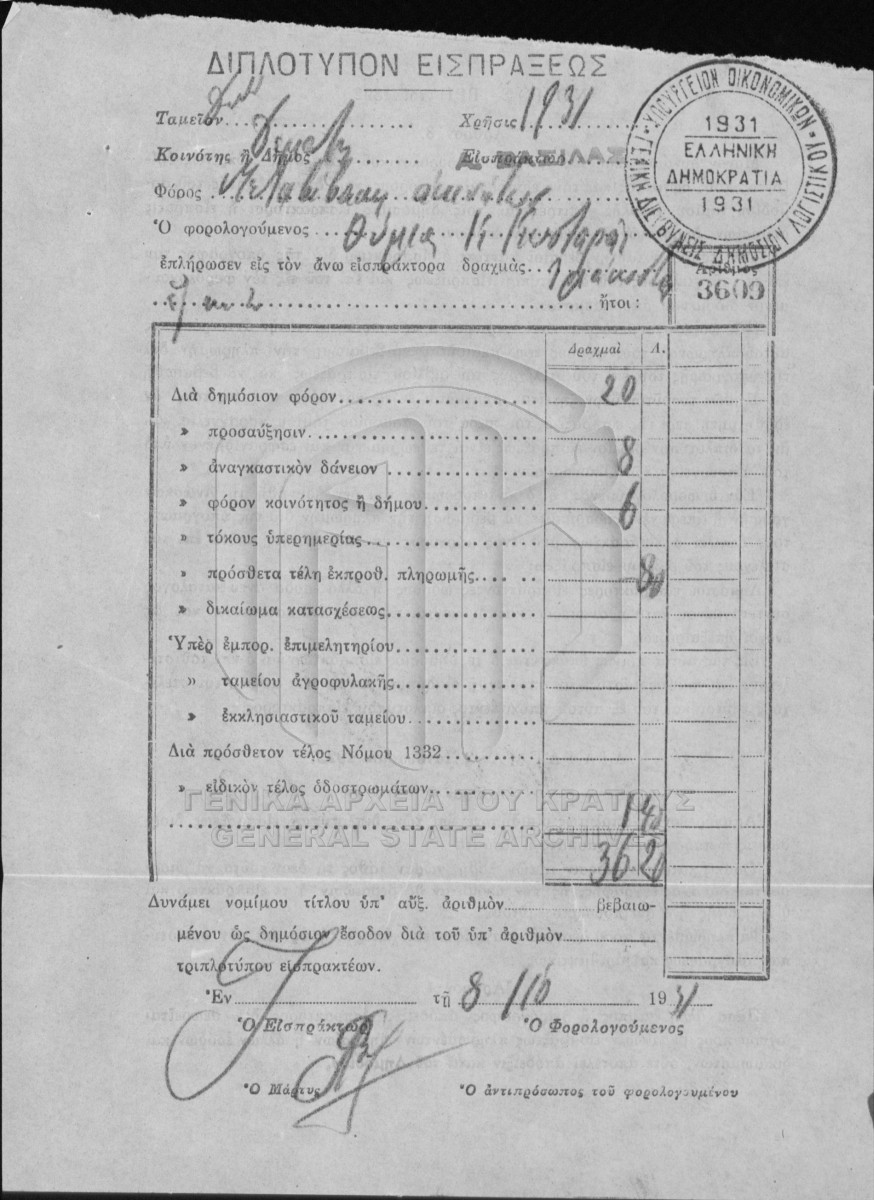 ΔΙΠΛΟΤΥΠΟΝ ΕΙΣΠΡΑΞΕΩΣ
ΥΠΟΥΡΓΕΙΟΝ ΟΙΚΟΝΟΜΙΚΩΝ ΓΕΝΙΚΗ ΔΙΕΥΘΥΝΣΙΣ ΔΗΜΟΣΙΟΥ ΛΟΓΙΣΤΙΚΟΥ
1931
ΕΛΛΗΝΙΚΗ
ΔΗΜΟΚΡΑΤΙΑ
1931
Ταμεῖον Χρῆσις 1931
Κοινότης ἢ Δῆμος Εἰσπράκτωρ
Φόρος Μεταβίβασης ἀκινήτων
Ὁ φορολογούμενος
ἐπλήρωσεν εἰς τὸν ἄνω εἰσπράκτορα δραχμὰς τριάκοντα
Ἀριθμὸς
3609
ἤτοι :
Δραχμαὶ Λ.
Διὰ δημόσιον φόρον 20
» προσαύξησιν
» ἀναγκαστικὸν δάνειον 8
» φόρον κοινότητος ἢ δήμου 6
» τόκους ὑπερημερίας
» πρόσθετα τέλη ἐκπροθ. πληρωμῆς - 80
» δικαίωμα κατασχέσεως
Ὑπὲρ ἐμπορ. ἐπιμελητηρίου
» ταμείου ἀγροφυλακῆς
» ἐκκλησιαστικοῦ ταμείου
Διὰ πρόσθετον τέλος Νόμου 1332
» εἰδικὸν τέλος ὁδοστρωμάτων
ΓΕΝΙΚΑ ΑΡΧΕΙΑ ΤΟΥ ΚΡΑΤΟΥΣ
1 40
GENERAL STATE ARCHIVES
36 20
Δυνάμει νομίμου τίτλου ὑπ' αὔξ. ἀριθμὸν βεβαιω-
μένου ὡς δημόσιον ἔσοδον διὰ τοῦ ὑπ' ἀριθμὸν
τριπλοτύπου εἰσπρακτέων.
Ἐν τῇ 8/10 1931
Ὁ Εἰσπράκτωρ Ὁ Φορολογούμενος
Ὁ Μάρτυς Ὁ ἀντιπρόσωπος τοῦ φορολογουμένου